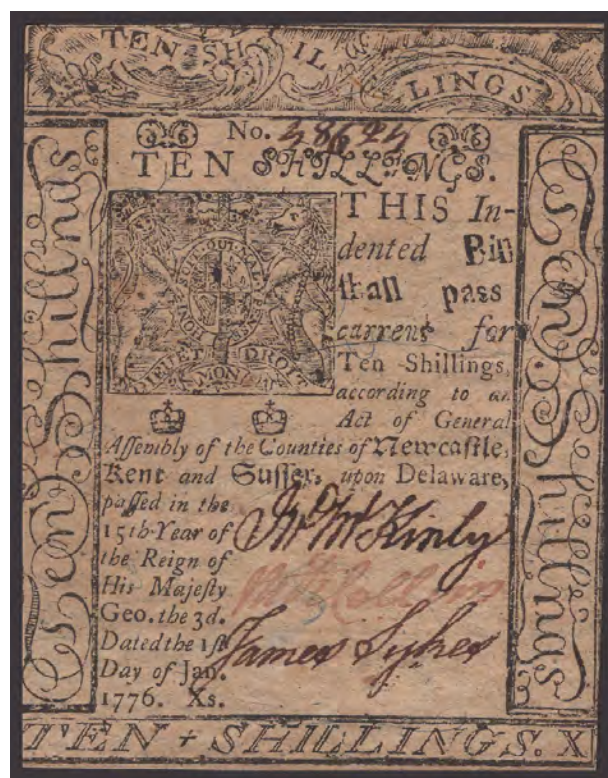 TEN SHILLINGS
No. 38645
TEN SHILLINGS.
THIS In-
dented Bill
shall pass
current for
Ten Shillings,
according to an
Act of General
Assembly of the Counties of Newcastle,
Kent and Sussex, upon Delaware,
passed in the
15th Year of
the Reign of
His Majesty
Geo. the 3d.
Dated the 1st
Day of Jan.
1776. Xs.
HONI SOIT QUI MAL Y PENSE
DIEU ET MON DROIT
Jno McKinly
Collins
James Sykes
Ten Shillings
Ten Shillings
TEN + SHILLINGS. X